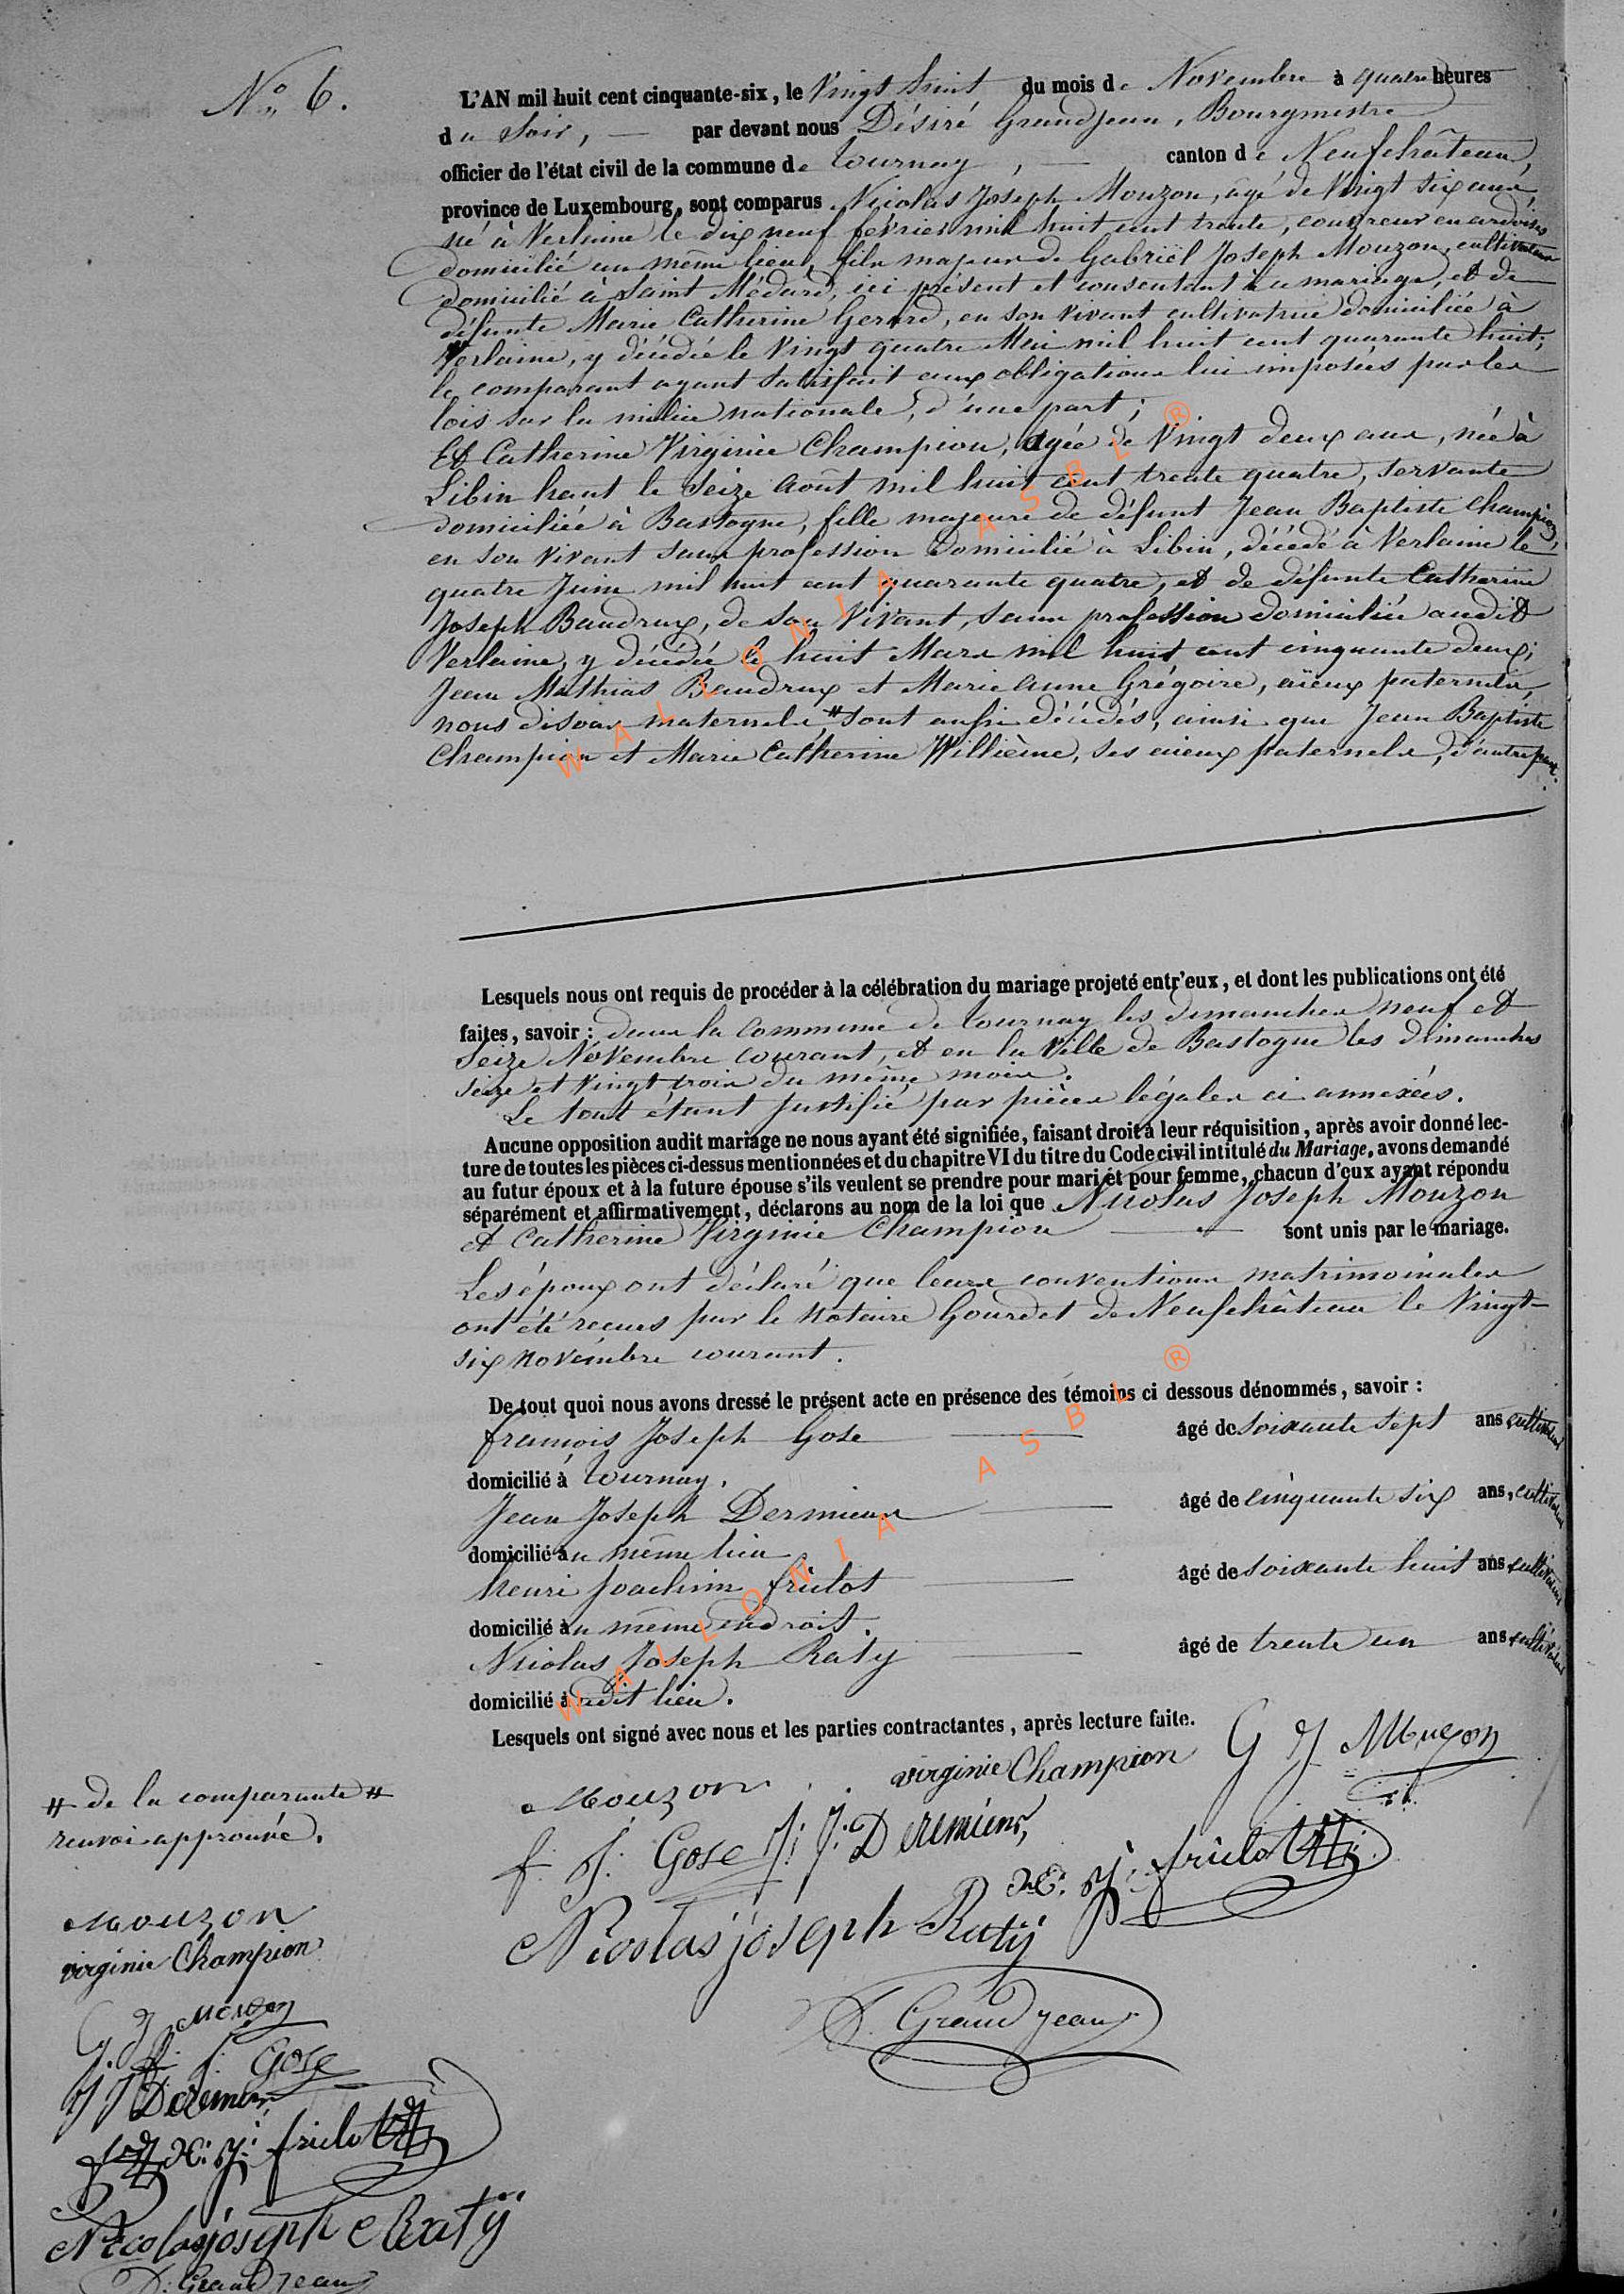 N° 6.
L'AN mil huit cent cinquante-six, le Vingt huit du mois de Novembre à quatre heures
du Soir, — par devant nous Désiré Grandjean, Bourgmestre
officier de l'état civil de la commune de Tournay, — canton de Neufchâteau,
province de Luxembourg, sont comparus Nicolas Joseph Mouzon, âgé de Vingt six ans,
né à Verlaine le dix neuf février mil huit cent trente, couvreur en ardoises
domicilié au même lieu, fils majeur de Gabriel Joseph Mouzon, cultivateur
domicilié à Saint Médard, ici présent et consentant à ce mariage, et de
défunte Marie Catherine Gerard, en son vivant cultivatrice domiciliée à
Verlaine, y décédée le Vingt quatre Mai mil huit cent quarante huit;
le comparant ayant satisfait aux obligations lui imposées par les
lois sur la milice nationale, d'une part;
Et Catherine Virginie Champion, âgée de Vingt deux ans, née à
Libin haut le Seize Août mil huit cent trente quatre, servante
domiciliée à Bastogne, fille majeure de défunt Jean Baptiste Champion,
en son vivant sans profession domicilié à Libin, décédé à Verlaine le
quatre Juin mil huit cent quarante quatre, et de défunte Catherine
Joseph Baudrux, de son Vivant, sans profession domiciliée audit
Verlaine, y décédée le huit Mars mil huit cent cinquante deux;
Jean Mathias Baudrux et Marie Anne Grégoire, aïeux paternels,
nous disons maternels, # sont aussi décédés, ainsi que Jean Baptiste
Champion et Marie Catherine Willième, ses aieux paternels, d'autre part.
Lesquels nous ont requis de procéder à la célébration du mariage projeté entr'eux, et dont les publications ont été
faites, savoir : dans la Commune de Tournay les dimanches neuf et
Seize Novembre courant, et en la Ville de Bastogne les dimanches
seize et vingt trois du même mois.
Le tout étant justifié par pièces légales ci annexées.
Aucune opposition audit mariage ne nous ayant été signifiée, faisant droit à leur réquisition, après avoir donné lec-
ture de toutes les pièces ci-dessus mentionnées et du chapitre VI du titre du Code civil intitulé du Mariage, avons demandé
au futur époux et à la future épouse s'ils veulent se prendre pour mari et pour femme, chacun d'eux ayant répondu
séparément et affirmativement, déclarons au nom de la loi que Nicolas Joseph Mouzon
et Catherine Virginie Champion — sont unis par le mariage.
Les époux ont déclaré que leurs conventions matrimoniales
ont été recues par le Notaire Gourdet de Neufchâteau le Vingt-
six novembre courant.
De tout quoi nous avons dressé le présent acte en présence des témoins ci dessous dénommés, savoir :
François Joseph Gose — âgé de soixante sept ans cultivateur
domicilié à Tournay.
Jean Joseph Dermiens — âgé de cinquante six ans, cultivateur
domicilié au même lieu
henri Joachim frulot — âgé de soixante huit ans cultivateur
domicilié au même endroit.
Nicolas Joseph Raty — âgé de trente un ans cultivateur
domicilié audit lieu.
Lesquels ont signé avec nous et les parties contractantes, après lecture faite.
Mouzon virginie Champion G J Mouzon
f. J. Gose J. J. Deremiens,
h. J. frulot
Nicolas joseph Raty
D. Grandjean
# de la comparante #
renvoi approuvé.
Mouzon
virginie Champion
G J Mouzon
f. J. Gose
J J Deremiens
h. J. frulot
Nicolas joseph Raty
D. Grandjean
WALLONIA ASBL ®
WALLONIA ASBL ®